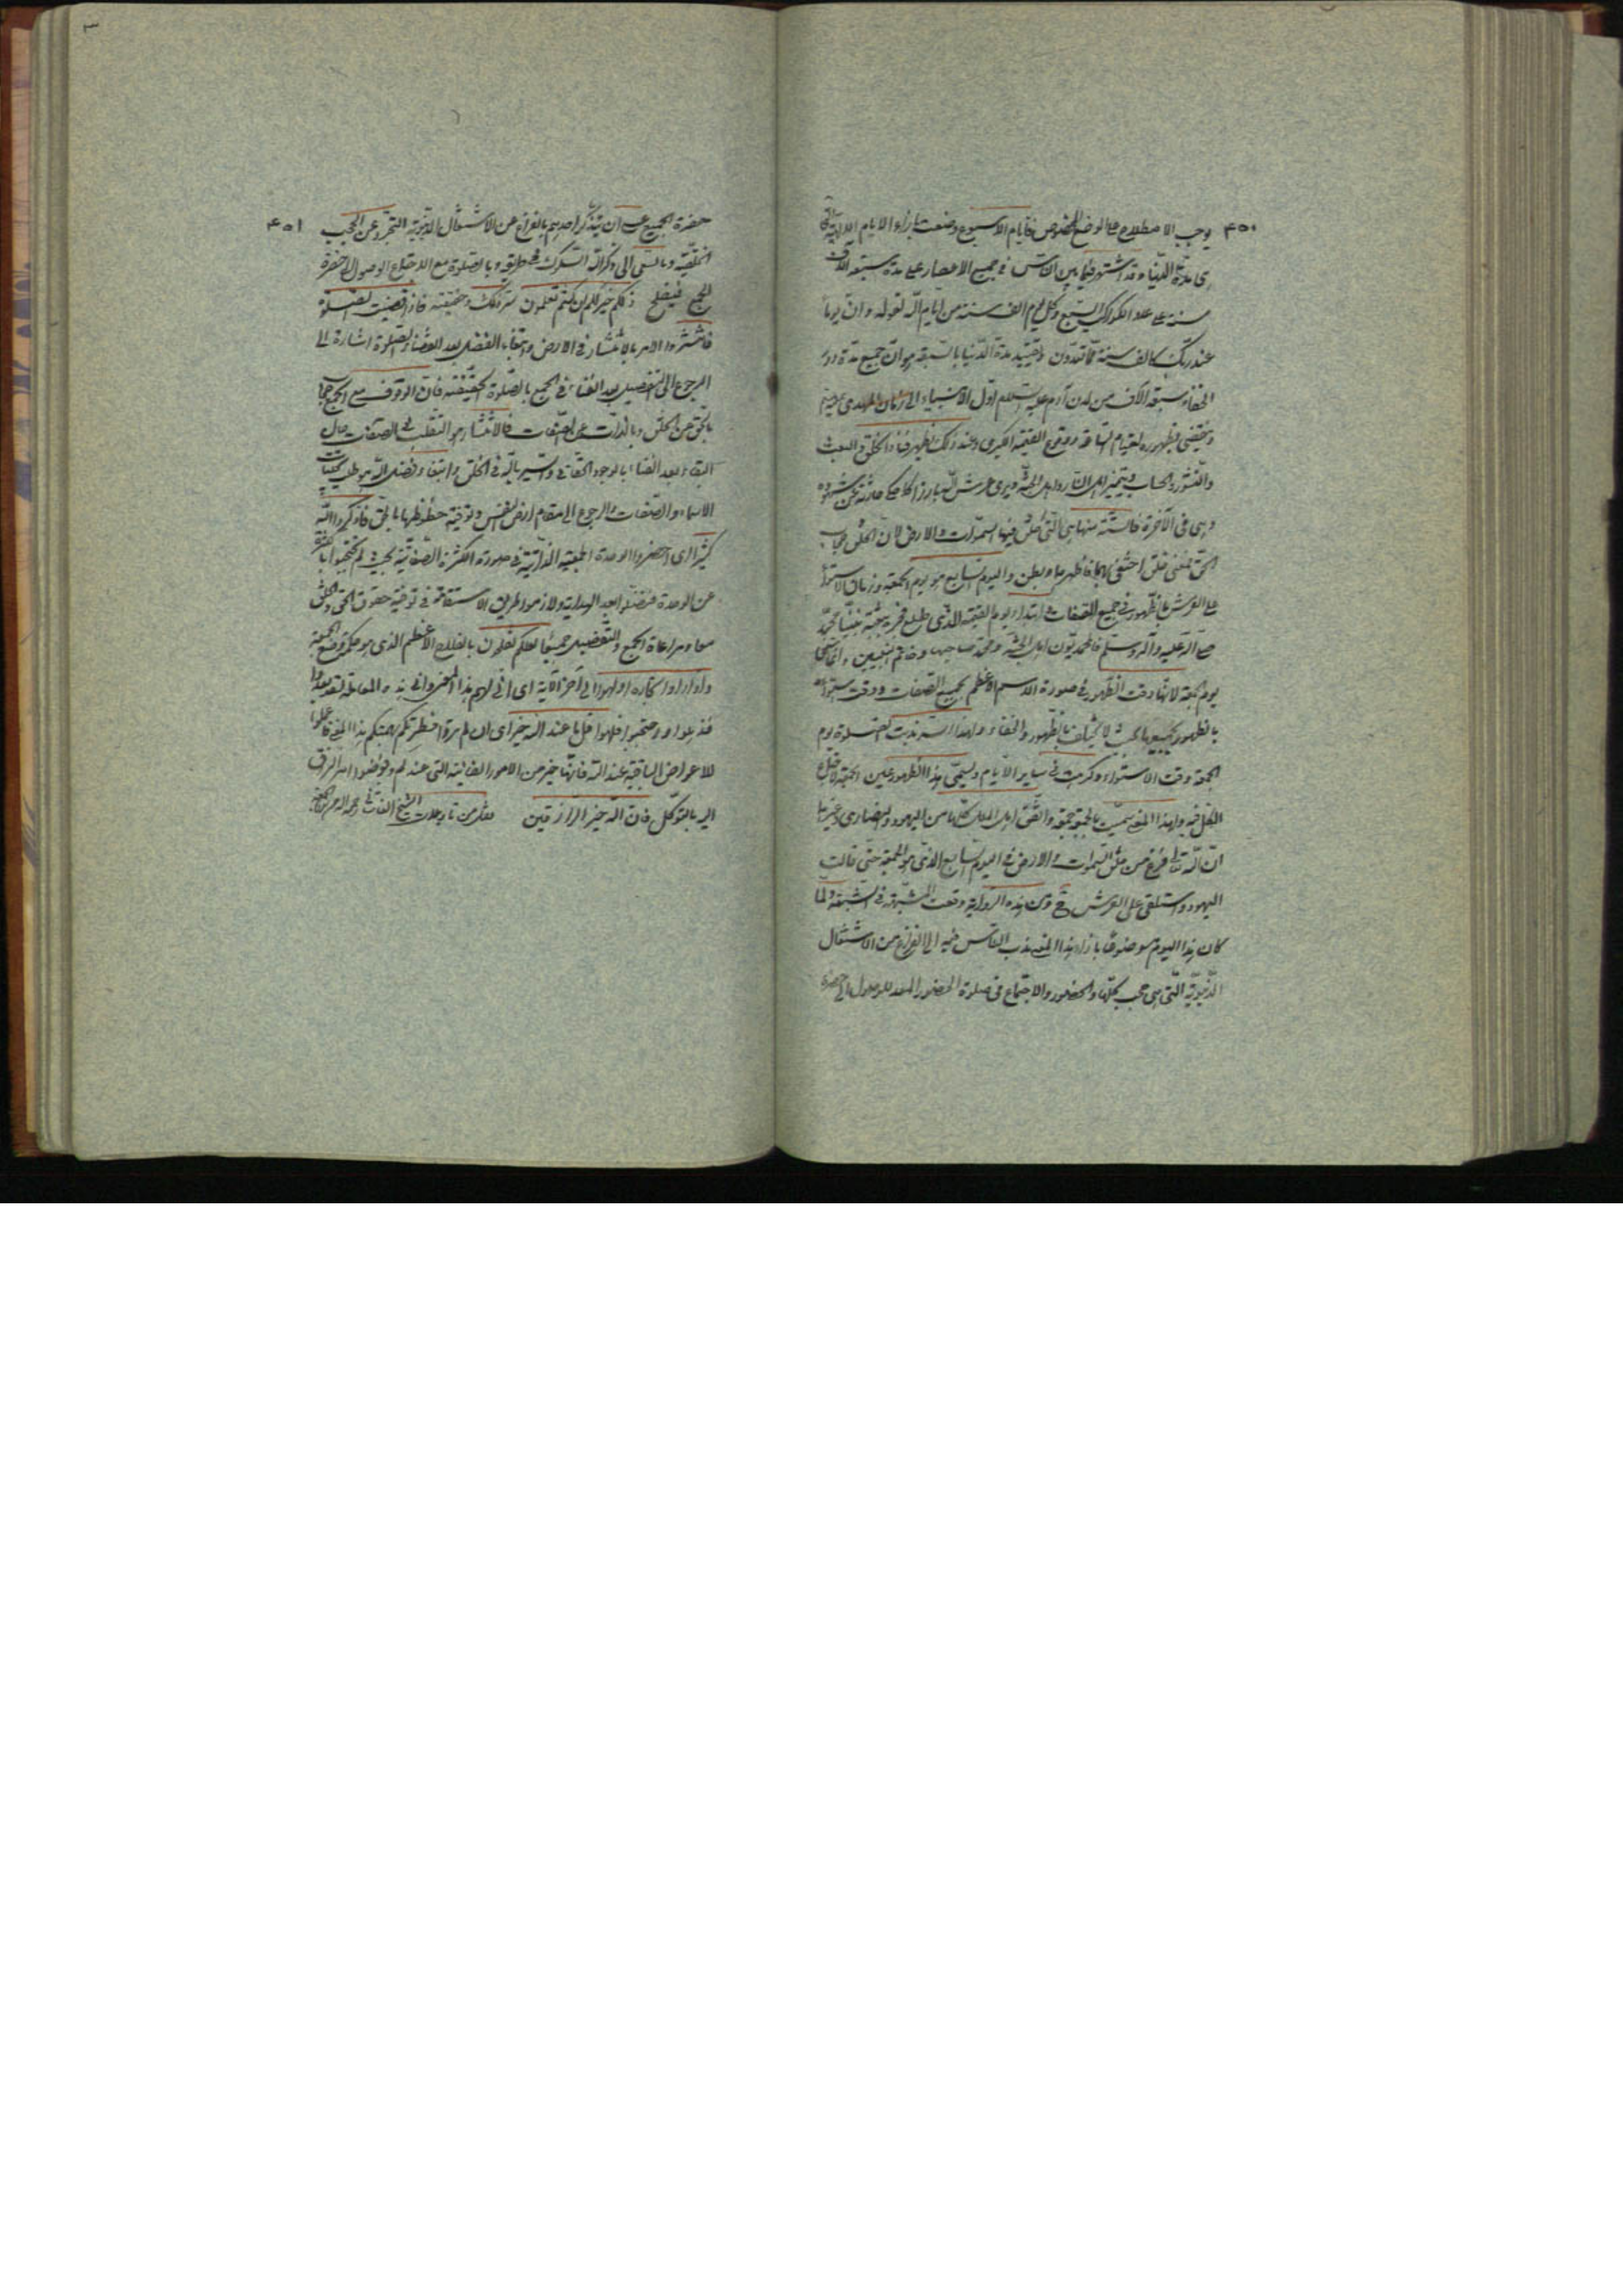 ۴۵۰
يوجب الاصطلاع على الوضع المخصوص فايام الاسبوع وضعت بازاء الايام الالهية التي
هي مدة الدنيا وقد اشتهر فيما بين الناس في جميع الاعصار على مدة سبعة آلاف
سنة على عدد الكواكب السبع وكل يوم الف سنة من ايام الله لقوله وان يوما
عند ربك كالف سنة مما تعدون وتقييد مدة الدنيا بالسبعة هو ان جميع مدة دور
الخفاء سبعة آلاف من لدن آدم عليه السلام اول الانبياء الى زمان المهدي
وينقضي بظهوره لقيام الساعة ووقوع القيمة الكبرى وعند ذلك يظهر فناء الخلق والبعث
والنشور والحساب ويتميز اهل النار واهل الجنة ويرى عرش الله بارزا كما حكى حارثة عن شهوده
وهي في الآخرة فالستة منها هي التي خلق فيها السموات والارض لان الخلق حجاب
الحق فمعنى خلق اختفى بها فاظهرها وبطن واليوم السابع هو يوم الجمعة وزمان الاستواء
على العرش بالظهور في جميع الصفات في ابتداء يوم القيمة الذي طلع فجره ببعثة نبينا محمد
صلى الله عليه وآله وسلم فالمحمديون اهل الجنة ومحمد صاحبها وخاتم النبيين وانما سمي
يوم الجمعة لانها وقت الظهور في صورة الاسم الاعظم لجميع الصفات ووقت استوائه
بالظهور جميعها بحيث لا يختلف بالظهور والخفاء ولهذا السر ندبت الصلوة يوم
الجمعة وقت الاستواء وكرهت في ساير الايام ويسمى هذا الظهور عين الجمع لاجتماع
الكل فيه ولهذا المعنى سميت الجمعة جمعة واتفق اهل الملل كلها من اليهود والنصارى وغيرها
ان الله تعالى فرغ من خلق السموات والارض في اليوم السابع الذي هو الجمعة حتى قالت
اليهود واستلقى على العرش فمن هذه الرواية وقعت الشبهة في السبعة ولما
كان هذا اليوم موضوعا بازاء هذا المعنى ندب الناس فيه الى الفراغ من الاشتغال
الدنيوية التي هي حجب كلها والحضور والاجتماع في صلوة الحضور المعد للوصول الى حضرة
۴۵۱
حضرة الجميع عسى ان يتذكر احدهم بالفراغ عن الاشتغال الدنيوية التجرد عن الحجب
الخلقية وبالسعي الى ذكر الله السلوك في طريقه وبالصلوة مع الاجتماع الوصول الى حضرة
الجمع فيفلح ذلكم خير لكم ان كنتم تعلمون سر ذلك وحقيقته فاذا قضيت الصلوة
فانتشروا الامر بالانتشار في الارض وابتغاء الفضل بعد القضاء الصلوة اشارة الى
الرجوع الى التفصيل بعد الفناء في الجمع بالصلوة الحقيقية فان الوقوف مع الجمع حجاب
بالحق عن الخلق وبالذات عن الصفات فالانتشار هو التقلب في الصفات حال
البقاء بعد الفناء بالوجود الحقاني والسير بالله في الخلق وابتغاء فضل الله هو طلب تجليات
الاسماء والصفات والرجوع الى مقام ارض النفس وتوفية حظوظها بالحق فاذكروا الله
كثيرا اي احضروا الوحدة الجمعية الذاتية في صورة الكثرة الصفاتية بحيث لم تحتجبوا بالكثرة
عن الوحدة فتضلوا بعد الهداية ولازموا طريق الاستقامة في توفية حقوق الحق والخلق
معا ومراعاة الجمع والتفصيل جميعا لعلكم تفلحون بالفلاح الاعظم الذي هو حكمة وضع الجمعة
واذا راوا تجارة او لهوا الى آخر الآية اي انى لهم هذا المعنى وانى هذه المعاملة لقد بعدوا
فذهلوا واحتجبوا فلهوا قل ما عند الله خير اي ان لم ترق فطرتكم بهمتكم هذا المعنى فاعملوا
للاعراض الباقية عند الله فانها خير من الامور الفانية التي عندكم وفوضوا امر الرزق
اليه بالتوكل فان الله خير الرازقين نقل من تاويلات الشيخ القاشاني